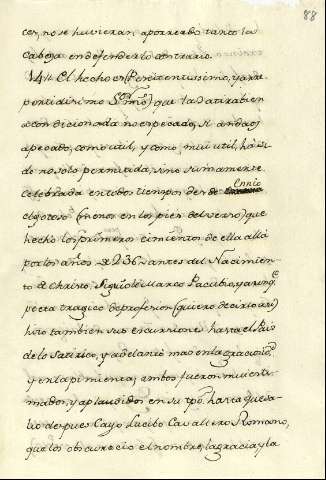 88
cer, no se huvieran aporreado tanto la
cabeza en defender lo contrario.
14 El hecho es (Penitentissimo, y arre-
pentidissimo Sr. mo) que la Satira bien
acondicionada no es pecado, si anda
apecado, como util, y como mui util, ha si-
do no solo permitida, sino sumamente
celebrada en todos tiempos desde Ennio
el gotoso (menos en los pies del verso) que
hecho los primeros cimientos de ella allá
por los años de 236. antes del Nacimien-
to de Christo. Siguiole Marco Pacubio, y aunq.e
poeta tragico de profesion (quiero decirlo asi)
hizo tambien sus escursiones hasta el Pais
de lo Satirico, y adelantó mas en la gracia,
y en la pimienta; ambos fueron mui esti-
mados, y aplaudidos en su tpo. hasta que sa-
lio despues Cayo Lucilo Cavallero Romano,
que los obscurecio el nombre, la gracia y la